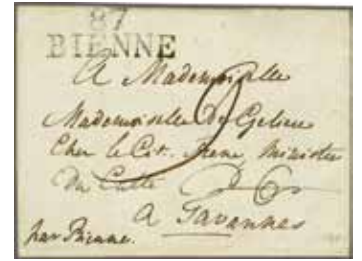 87
BIENNE
A Mademoiselle
Mademoiselle De Gelieu
Chez le Cit. Frene, Ministre
Du Culte
A Tavannes
par Bienne.